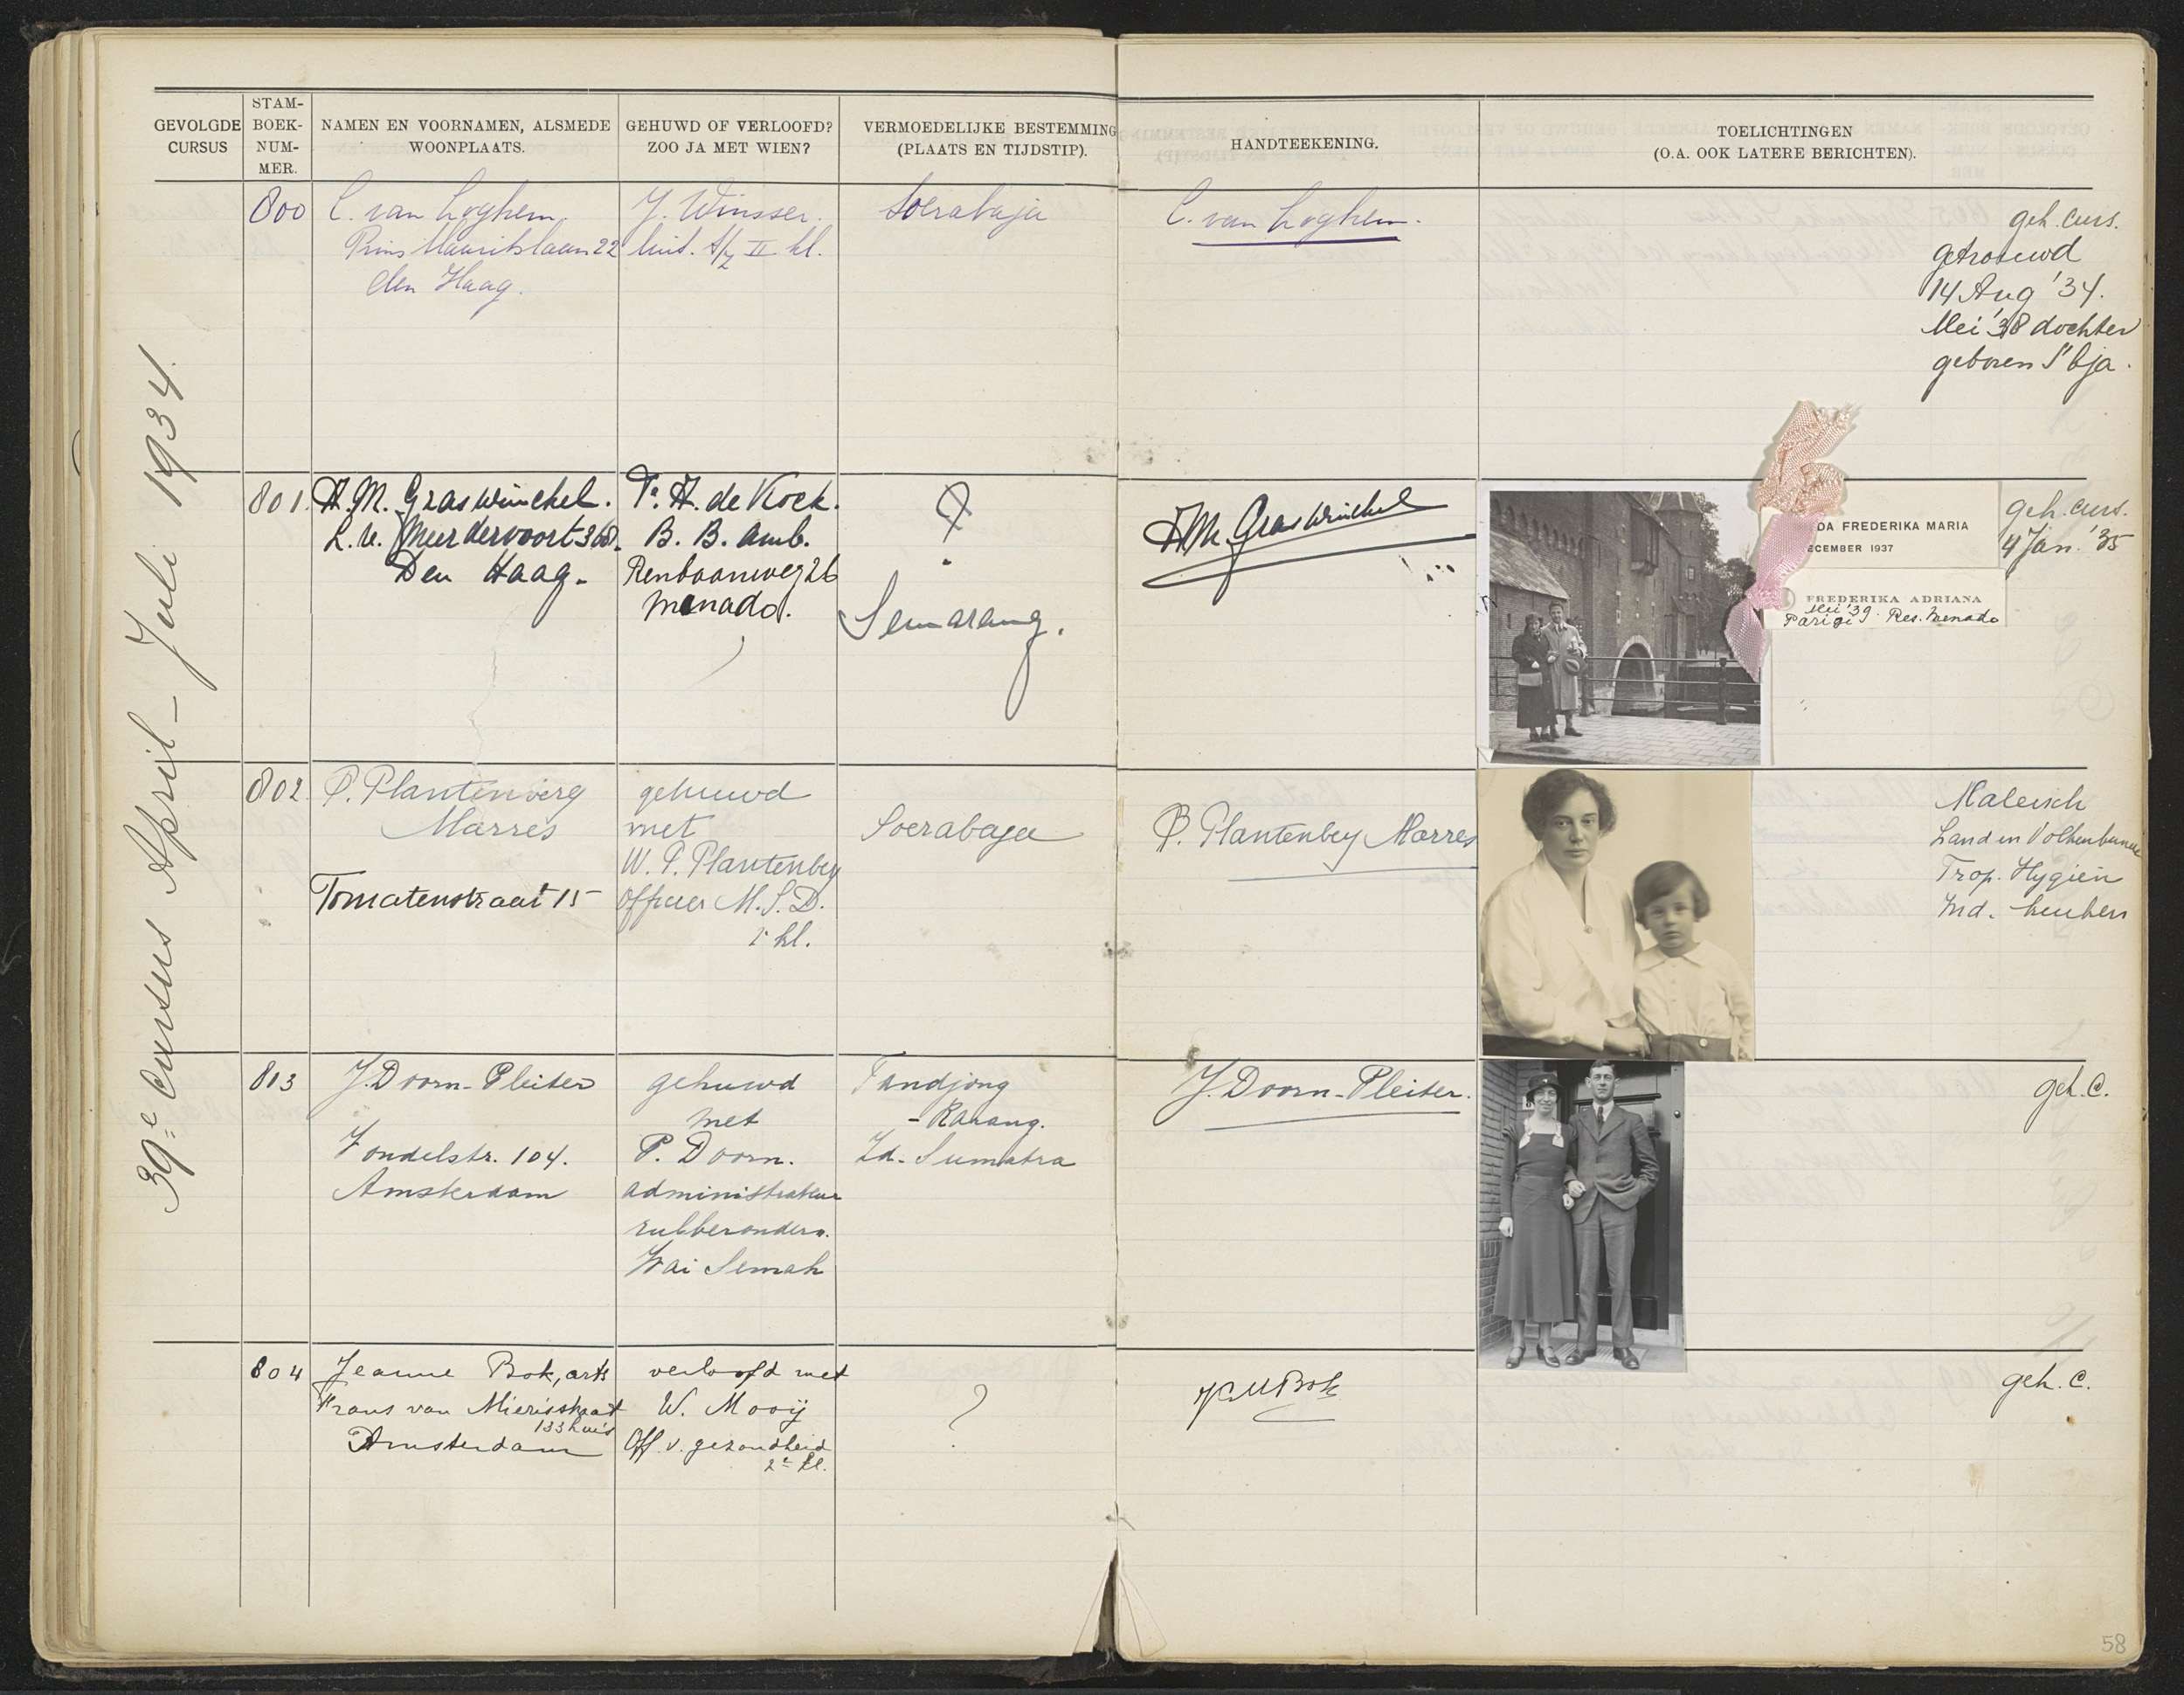 GEVOLGDE CURSUS
STAM-BOEK-NUM-MER.
NAMEN EN VOORNAMEN, ALSMEDE WOONPLAATS.
GEHUWD OF VERLOOFD? ZOO JA MET WIEN?
VERMOEDELIJKE BESTEMMING (PLAATS EN TIJDSTIP).
HANDTEEKENING.
TOELICHTINGEN
(O.A. OOK LATERE BERICHTEN).
39e Cursus April - Juli 1934
800
C. van Loghem
Prins Mauritslaan 22
den Haag.
J. Winsser.
luit. t/z II kl.
Soerabaja
C. van Loghem.
geh. curs.
getrouwd
14 Aug '34.
Mei '38 dochter
geboren S'bja.
801
A.M. Graswinckel.
L.v. Meerdervoort 368.
Den Haag.
H. de Kock.
B. B. amb.
Renbaanweg 26
Menado.
?
Semarang.
AM. Graswinckel
DA FREDERIKA MARIA
ECEMBER 1937
FREDERIKA ADRIANA
Mei '39.
Parigi Res. Menado
geh. curs.
4 Jan. '35
802
P. Plantenberg
Marres
Tomatenstraat 15
gehuwd
met
W. P. Plantenberg
Officier M.S.D.
1e kl.
Soerabaja
P. Plantenberg Marres
Maleisch
Land en Volkenkunde
Trop. Hygiën
Ind. keuken
813
J. Doorn-Pleiter
Vondelstr. 104.
Amsterdam
gehuwd
met
P. Doorn.
administrateur
rubberondern.
Wai Semah
Tandjong
- Karang.
Zd. Sumatra
J. Doorn-Pleiter.
geh. C.
804
Jeanne Bok, arts
Frans van Mierisstraat
133 huis
Amsterdam
verloofd met
W. Mooij
Off. v. gezondheid
2e kl.
?
JCM Bok
geh. C.
58